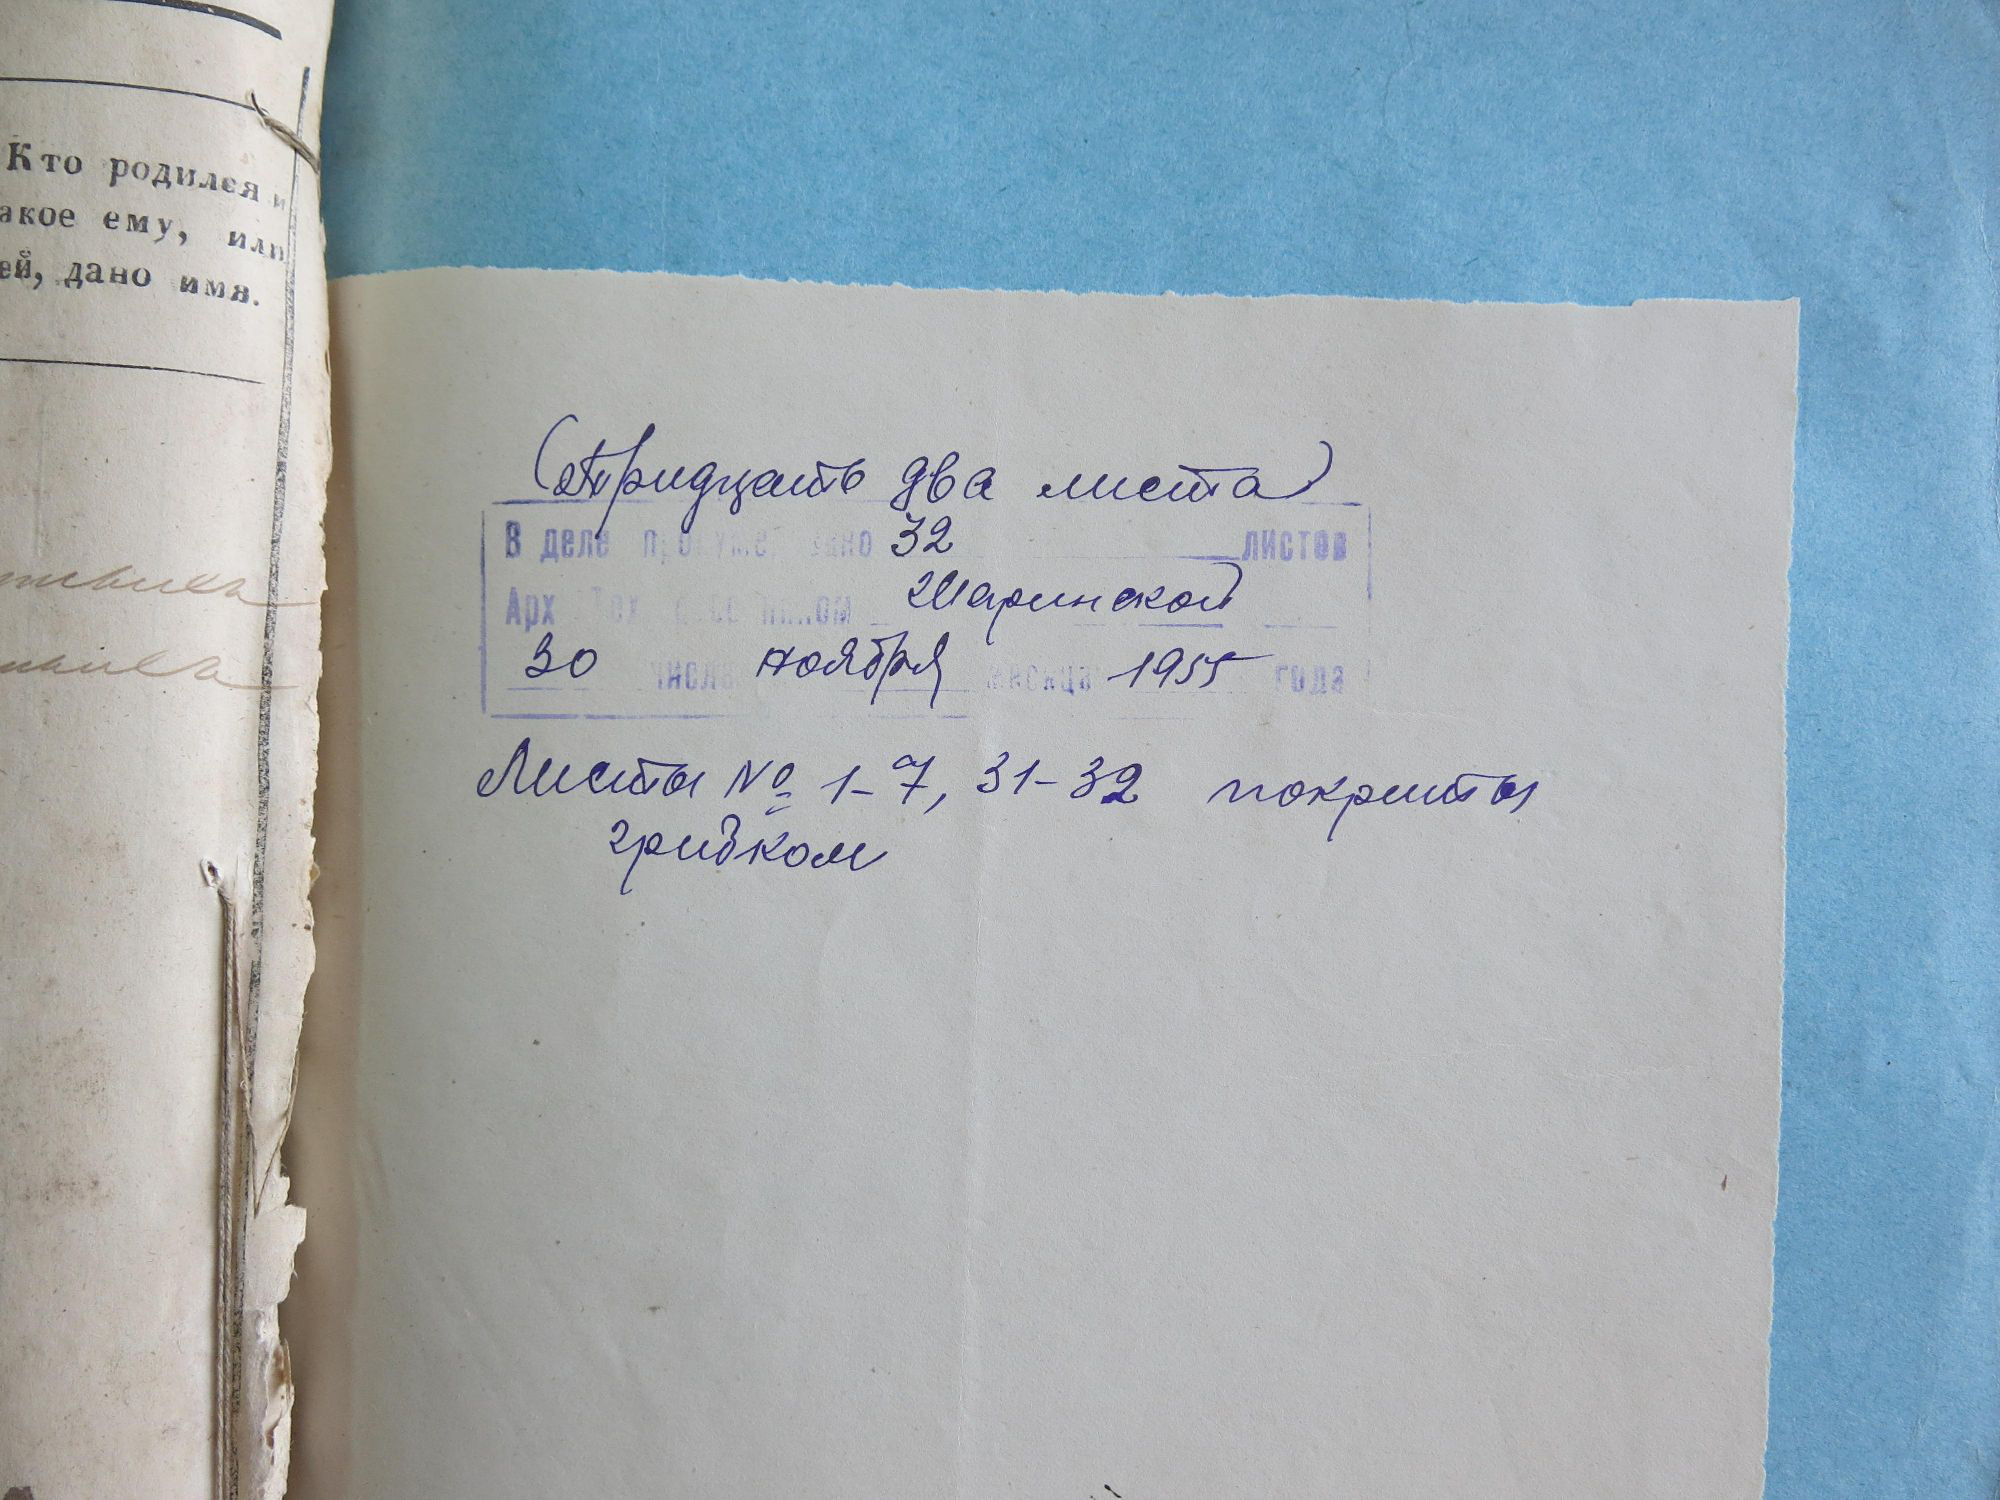 Кто родился и
акое ему, или
ей, дано имя.
(Тридцать два листа)
В деле пронумеровано 32 листов
Шаринской
30 числа ноября месяца 1955 года
Листы № 1-7, 31-32 покриты
грибком